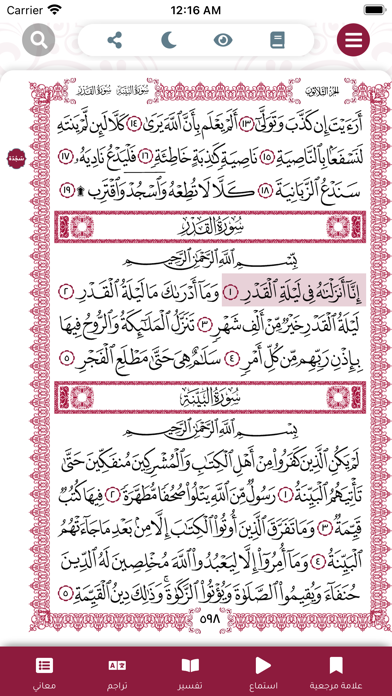 Carrier 12:16 AM
الجزء الثلاثون سورة البينة سورة القدر
أَرَءَيْتَ إِن كَذَّبَ وَتَوَلَّىٰٓ ١٣ أَلَمْ يَعْلَم بِأَنَّ ٱللَّهَ يَرَىٰ ١٤ كَلَّا لَئِن لَّمْ يَنتَهِ
لَنَسْفَعًۢا بِٱلنَّاصِيَةِ ١٥ نَاصِيَةٍ كَٰذِبَةٍ خَاطِئَةٍ ١٦ فَلْيَدْعُ نَادِيَهُۥ ١٧
سَنَدْعُ ٱلزَّبَانِيَةَ ١٨ كَلَّا لَا تُطِعْهُ وَٱسْجُدْ وَٱقْتَرِب ۩ ١٩
سَجْدَة
سُورَةُ ٱلْقَدْرِ
بِسْمِ ٱللَّهِ ٱلرَّحْمَٰنِ ٱلرَّحِيمِ
إِنَّآ أَنزَلْنَٰهُ فِى لَيْلَةِ ٱلْقَدْرِ ١ وَمَآ أَدْرَىٰكَ مَا لَيْلَةُ ٱلْقَدْرِ ٢
لَيْلَةُ ٱلْقَدْرِ خَيْرٌ مِّنْ أَلْفِ شَهْرٍ ٣ تَنَزَّلُ ٱلْمَلَٰٓئِكَةُ وَٱلرُّوحُ فِيهَا
بِإِذْنِ رَبِّهِم مِّن كُلِّ أَمْرٍ ٤ سَلَٰمٌ هِىَ حَتَّىٰ مَطْلَعِ ٱلْفَجْرِ ٥
سُورَةُ ٱلْبَيِّنَةِ
بِسْمِ ٱللَّهِ ٱلرَّحْمَٰنِ ٱلرَّحِيمِ
لَمْ يَكُنِ ٱلَّذِينَ كَفَرُوا۟ مِنْ أَهْلِ ٱلْكِتَٰبِ وَٱلْمُشْرِكِينَ مُنفَكِّينَ حَتَّىٰ
تَأْتِيَهُمُ ٱلْبَيِّنَةُ ١ رَسُولٌ مِّنَ ٱللَّهِ يَتْلُوا۟ صُحُفًا مُّطَهَّرَةً ٢ فِيهَا كُتُبٌ
قَيِّمَةٌ ٣ وَمَا تَفَرَّقَ ٱلَّذِينَ أُوتُوا۟ ٱلْكِتَٰبَ إِلَّا مِنۢ بَعْدِ مَا جَآءَتْهُمُ
ٱلْبَيِّنَةُ ٤ وَمَآ أُمِرُوٓا۟ إِلَّا لِيَعْبُدُوا۟ ٱللَّهَ مُخْلِصِينَ لَهُ ٱلدِّينَ
حُنَفَآءَ وَيُقِيمُوا۟ ٱلصَّلَوٰةَ وَيُؤْتُوا۟ ٱلزَّكَوٰةَ ۚ وَذَٰلِكَ دِينُ ٱلْقَيِّمَةِ ٥
٥٩٨
علامة مرجعية استماع تفسير تراجم معاني